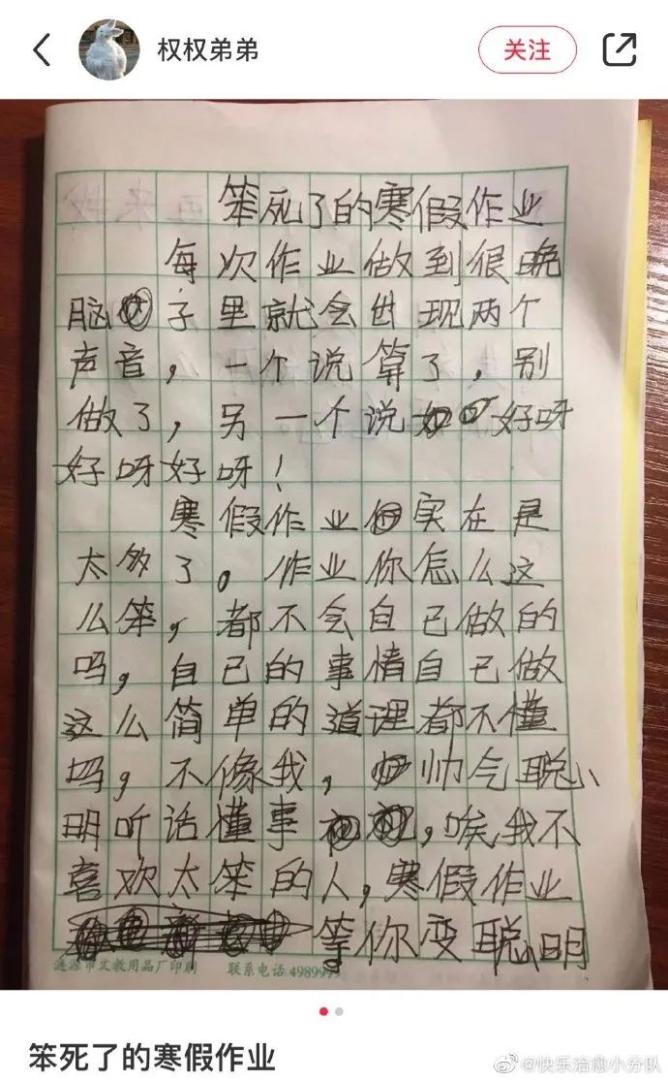 权权弟弟
关注
笨死了的寒假作业
每次作业做到很晚
脑子里就会出现两个
声音，一个说算了，别
做了，另一个说好呀
好呀好呀！
寒假作业实在是
太多了。作业你怎么这
么笨，都不会自己做的
吗，自己的事情自己做
这么简单的道理都不懂
吗，不像我，帅气聪
明听话懂事，唉我不
喜欢太笨的人，寒假作业
等你变聪明
涟源市文教用品厂印刷 联系电话:4989999
笨死了的寒假作业
@快乐治愈小分队